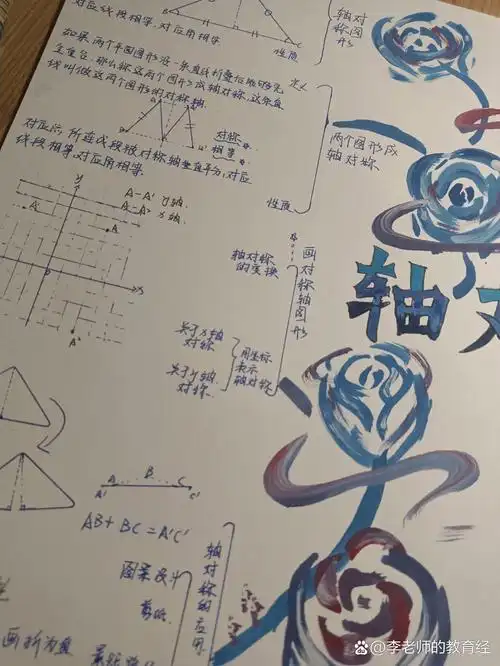 对应线段相等,对应角相等
性质
轴对称图形
如果两个平面图形沿一条直线折叠后能够完
全重合,那么称这两个图形成轴对称,这条直
线叫做这两个图形的对称轴.
定义
对称
相等
两个图形成
轴对称
对应点所连线段被对称轴垂直平分,对应
线段相等,对应角相等.
性质
A-A' y轴.
A-A'' x轴.
y
A'
A
0
x
A''
轴对称
的变换
画对称轴图形
关于x轴
对称
关于y轴
对称.
用坐标
表示
轴对称
轴
A B C
A' C'
AB+BC=A'C'
图案设计
剪纸
轴对称的应用
画折为直
@李老师的教育经